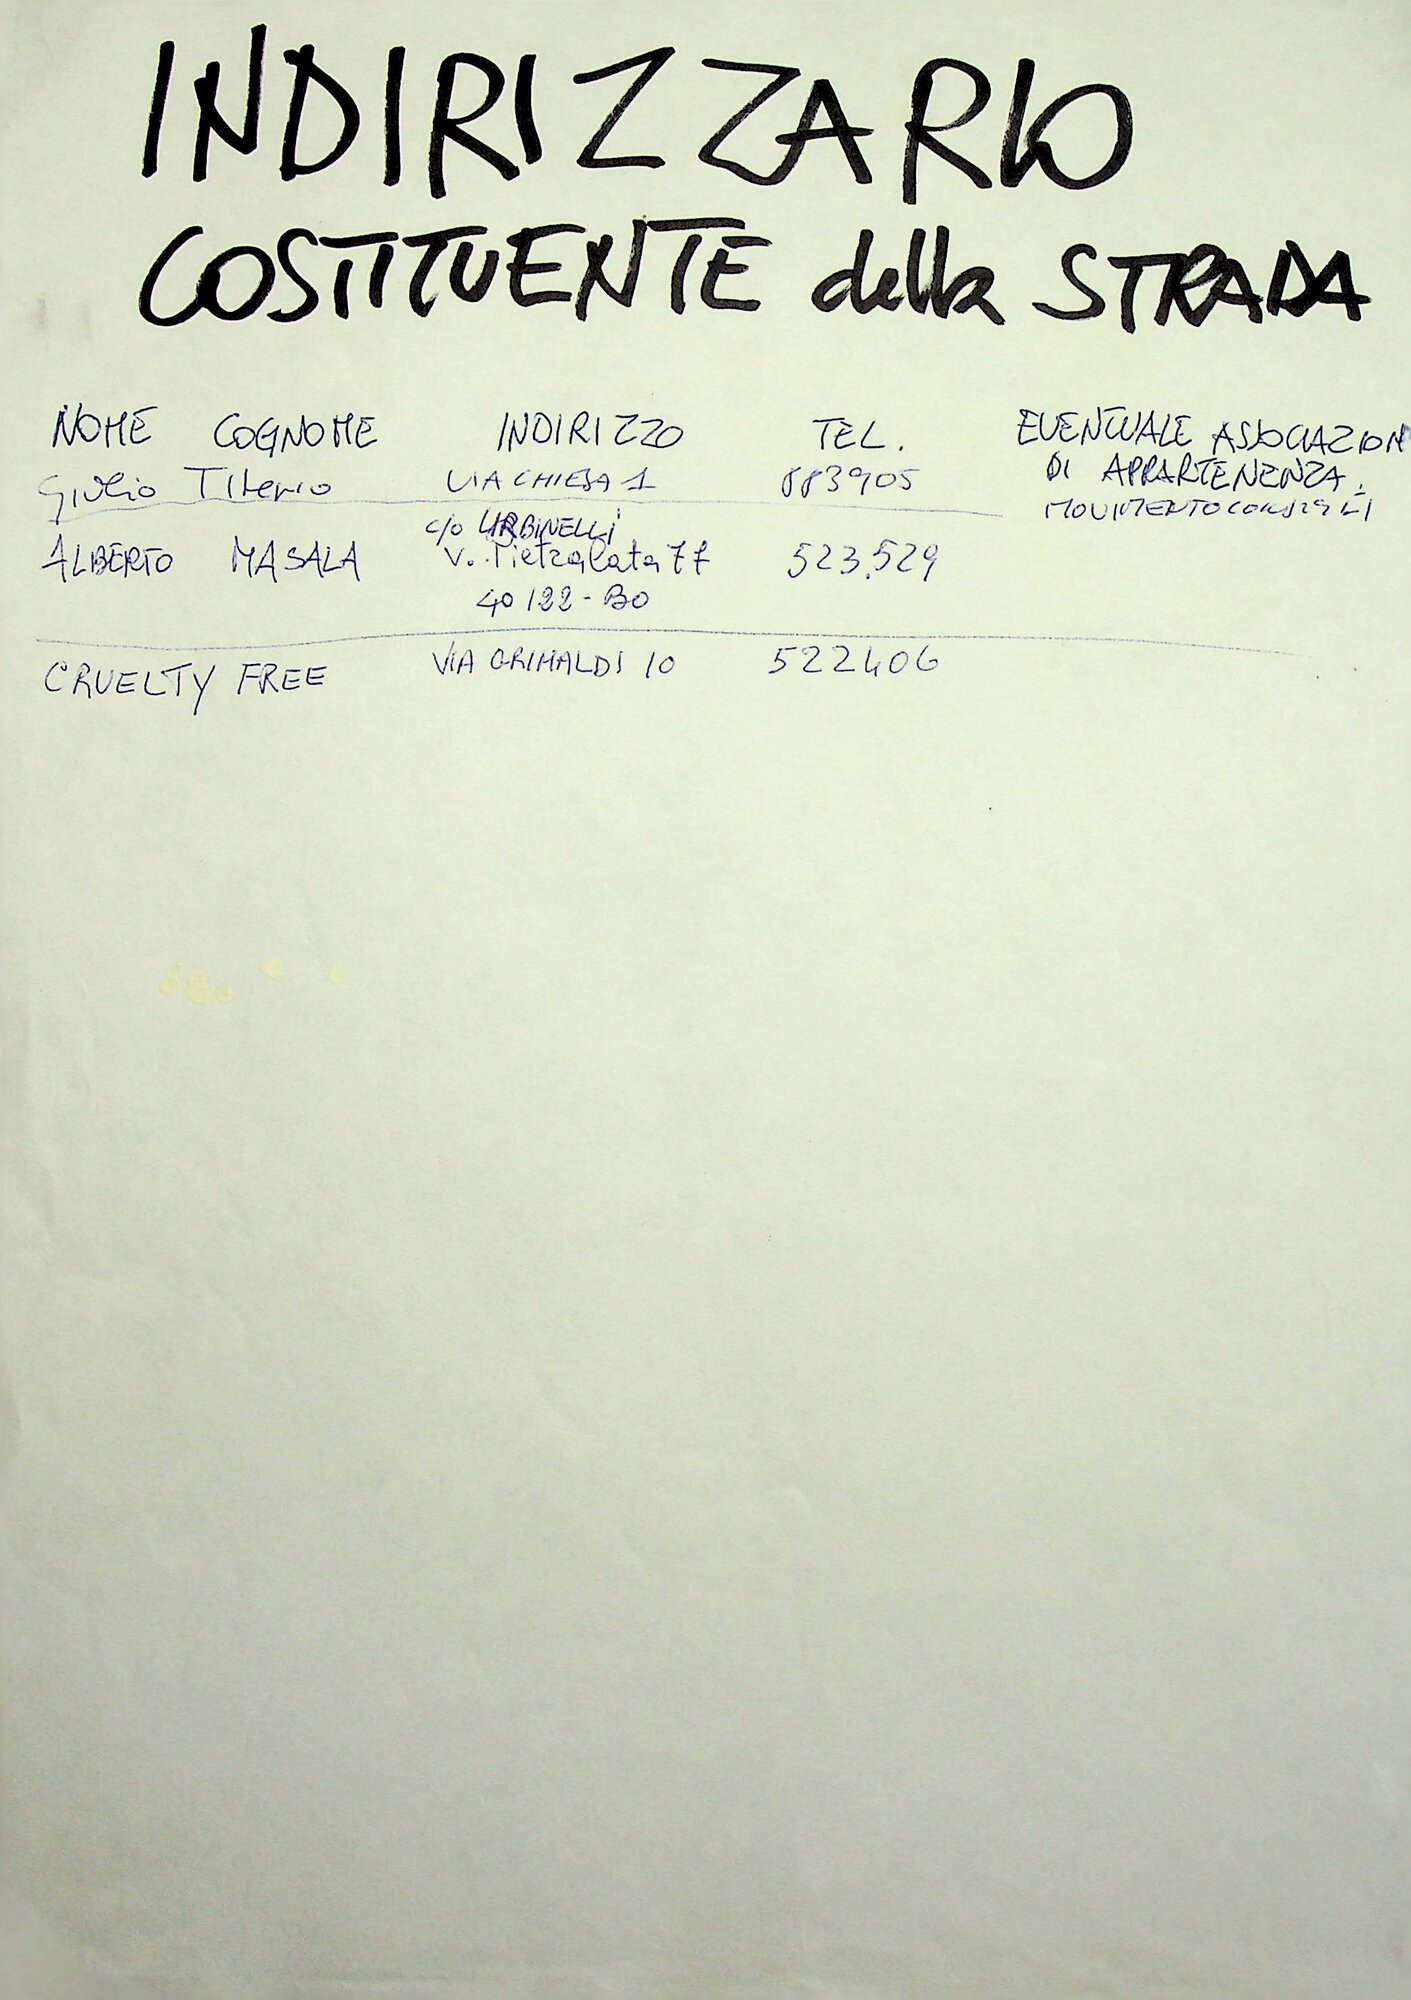 INDIRIZZARIO
COSTITUENTE della STRADA
NOME COGNOME INDIRIZZO TEL. EVENTUALE ASSOCIAZION
DI APPARTENENZA.
Giulio VIA CHIESA 1 883905 MOVIMENTO
c/o URBINELLI
ALBERTO MASALA V. Pietralata 77 523.529
40122-BO
CRUELTY FREE VIA GRIMALDI 10 522406